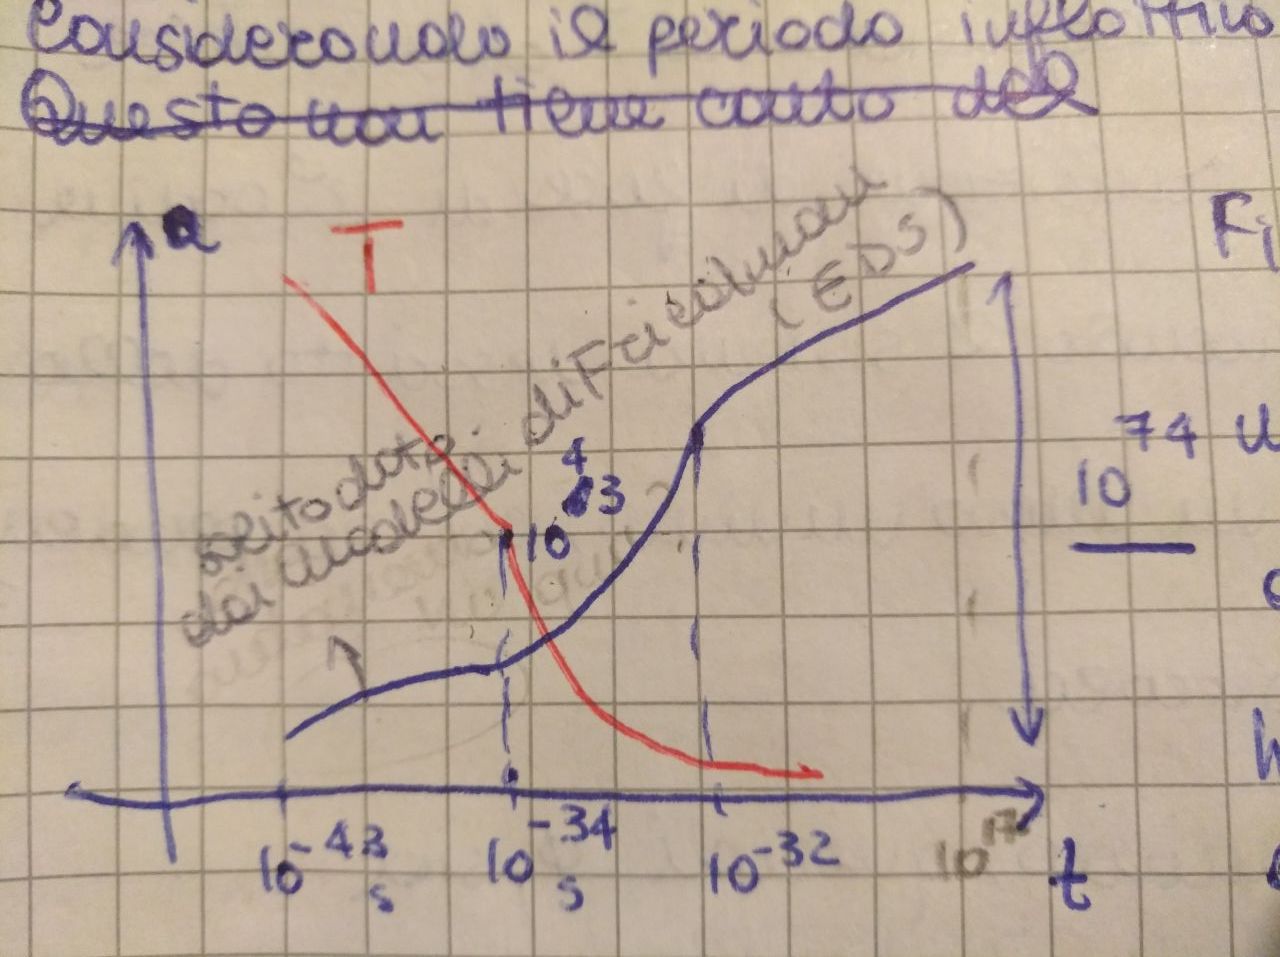 Considerando il periodo inflattivo
Questo non tiene conto del
a
T
Fi
(EDS)
dai modelli di Friedmann
4
10 43
10^74 u
10^-43 s
10^-34 s
10^-32
10^17
t